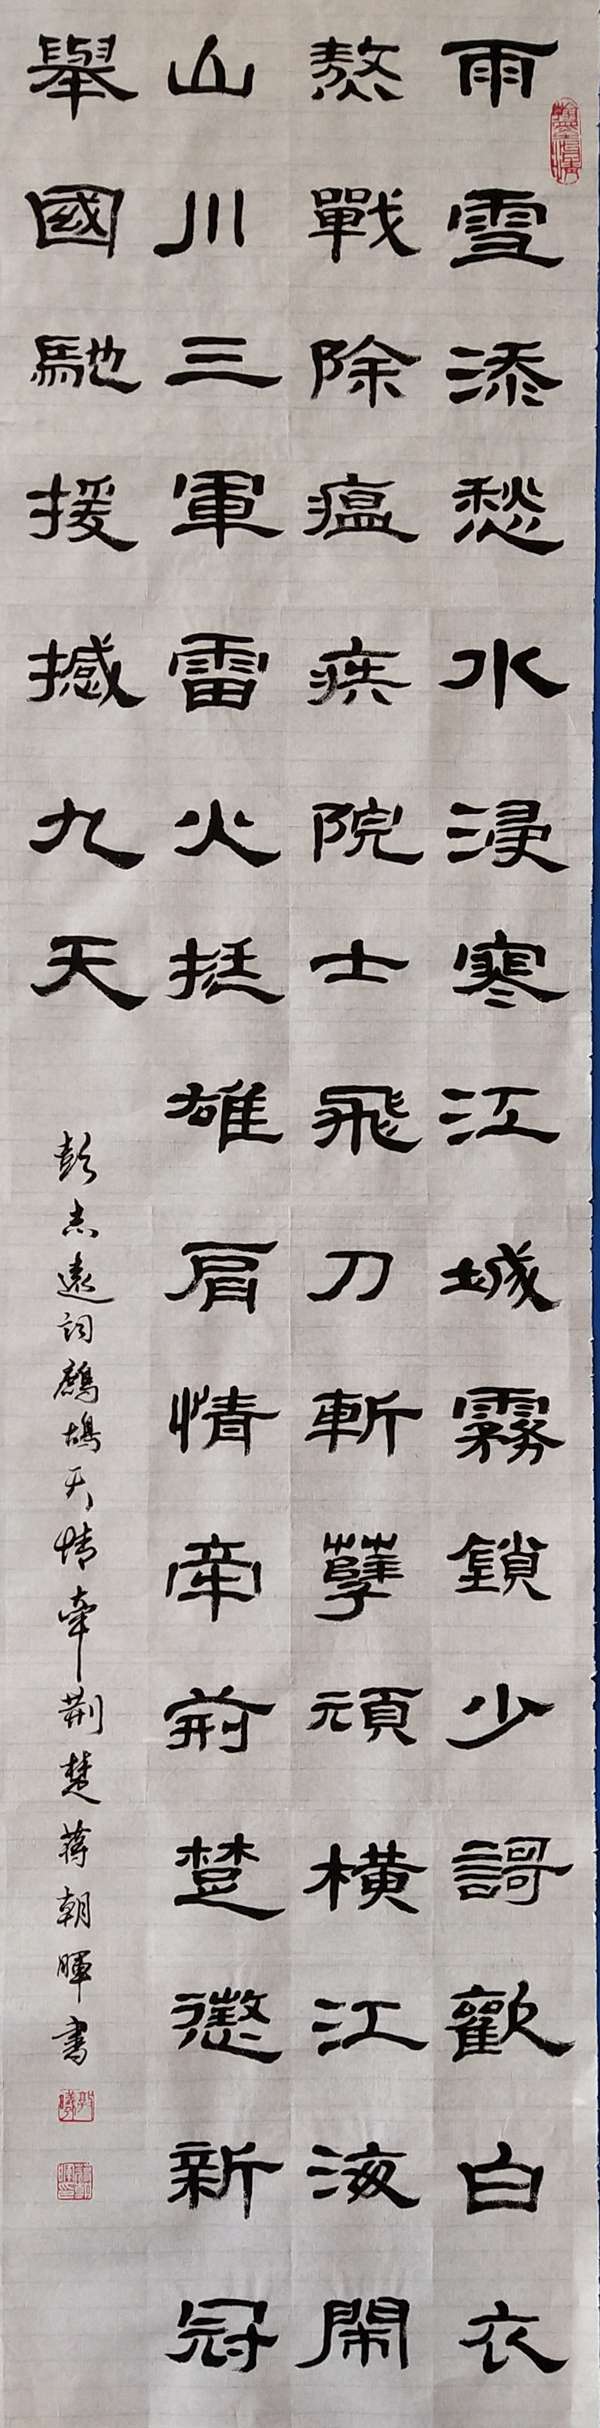 雨雪添愁水浸寒江城霧鎖少謌歡白衣
熬戰除瘟疾院士飛刀斬孽頑橫江海鬧
山川三軍雷火挺雄肩情牽荊楚懲新冠
舉國馳援撼九天
彭志遠詞鷓鴣天情牽荊楚蔣朝暉書